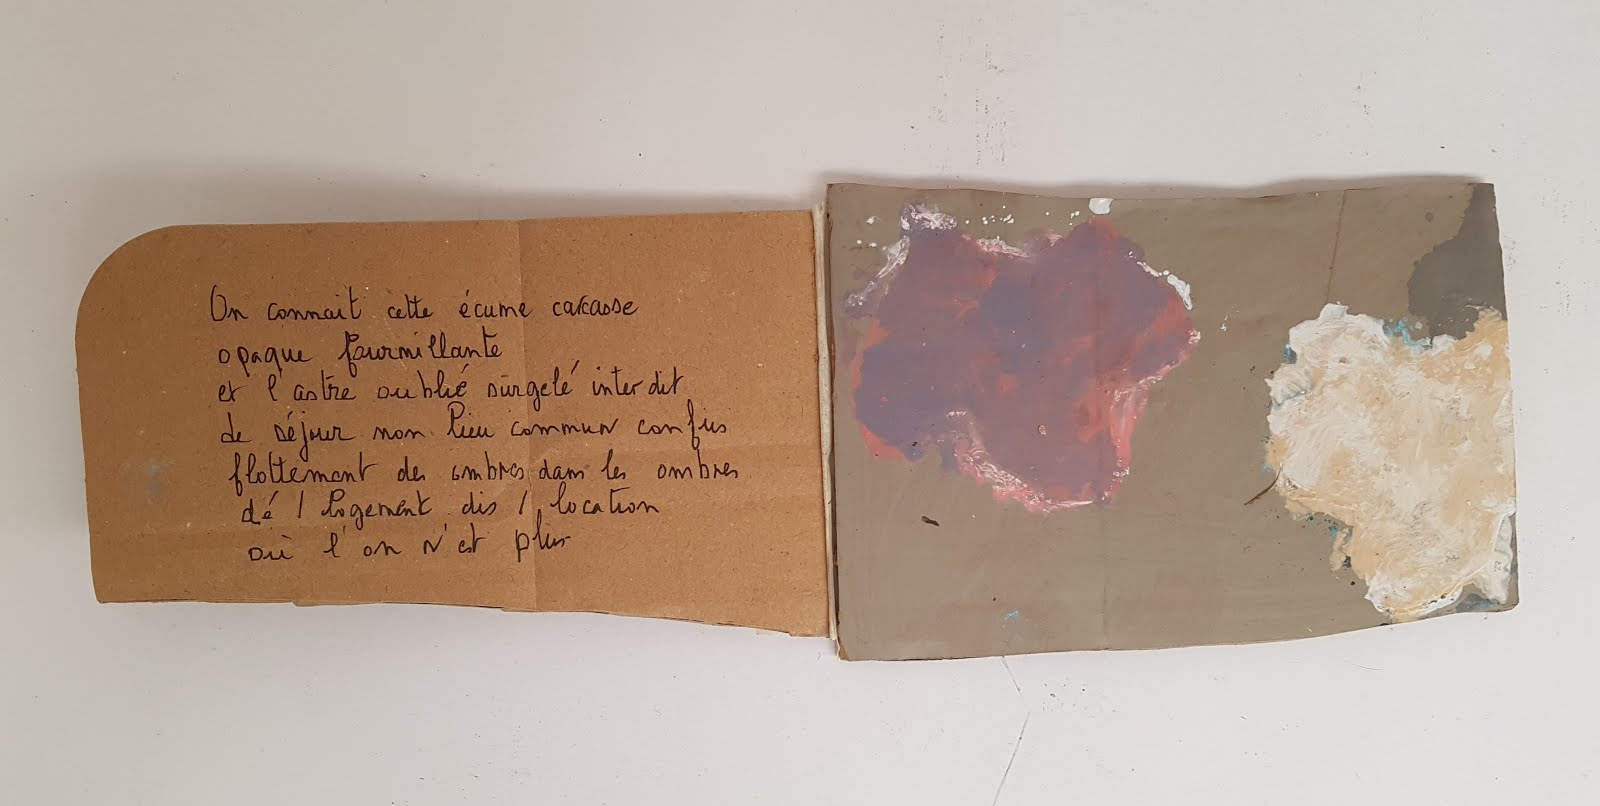 On connait cette écume carcasse
opaque fourmillante
et l'astre oublié surgelé interdit
de séjour non lieu commun confus
flottement des ombres dans les ombres
dé / logement dis / location
où l'on n'est plus